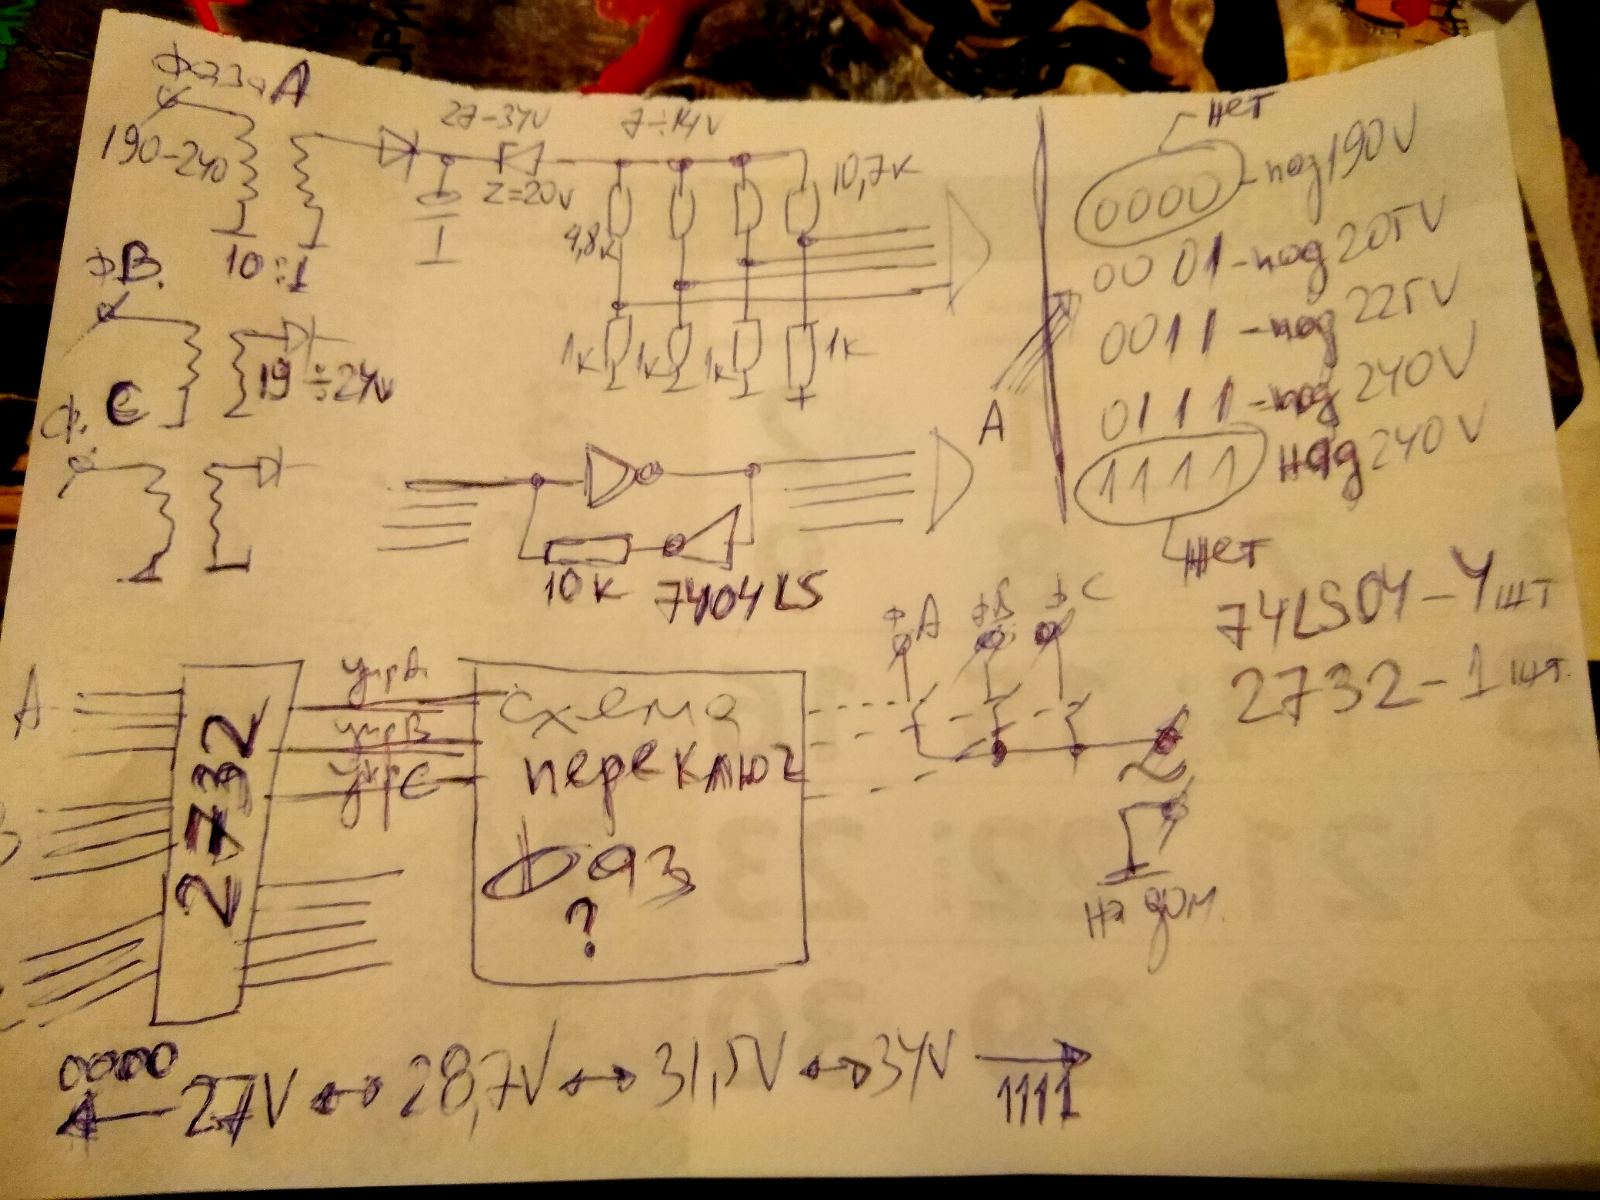 Фаза А
27-34V
7÷14V
190-240
Z=20V
10,7к
4,8к
10÷1
1к
1к
1к
1к
фВ.
19÷24v
ф. С
нет
0000 -под 190V
0001 -под 205V
0011 -под 225V
0111 -под 240V
1111 над 240V
нет
А
10к
7404LS
74LS04-4шт
2732-1шт.
А
2732
упрА
упрВ
упрС
схема
переключ
фаз
?
фА
фВ
фС
на дом.
0000
27V ↔ 28,7V ↔ 31,5V ↔ 34V
1111